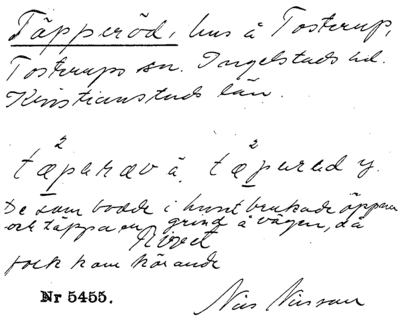 Täpperöd, hus å Tosterup,
Tosterups sn. Ingelstads hd.
Kristianstads län.
De som bodde i huset brukade öppna
och täppa en grind å vägen, då
folk kom körande
Nr 5455.
Nils Nilsson